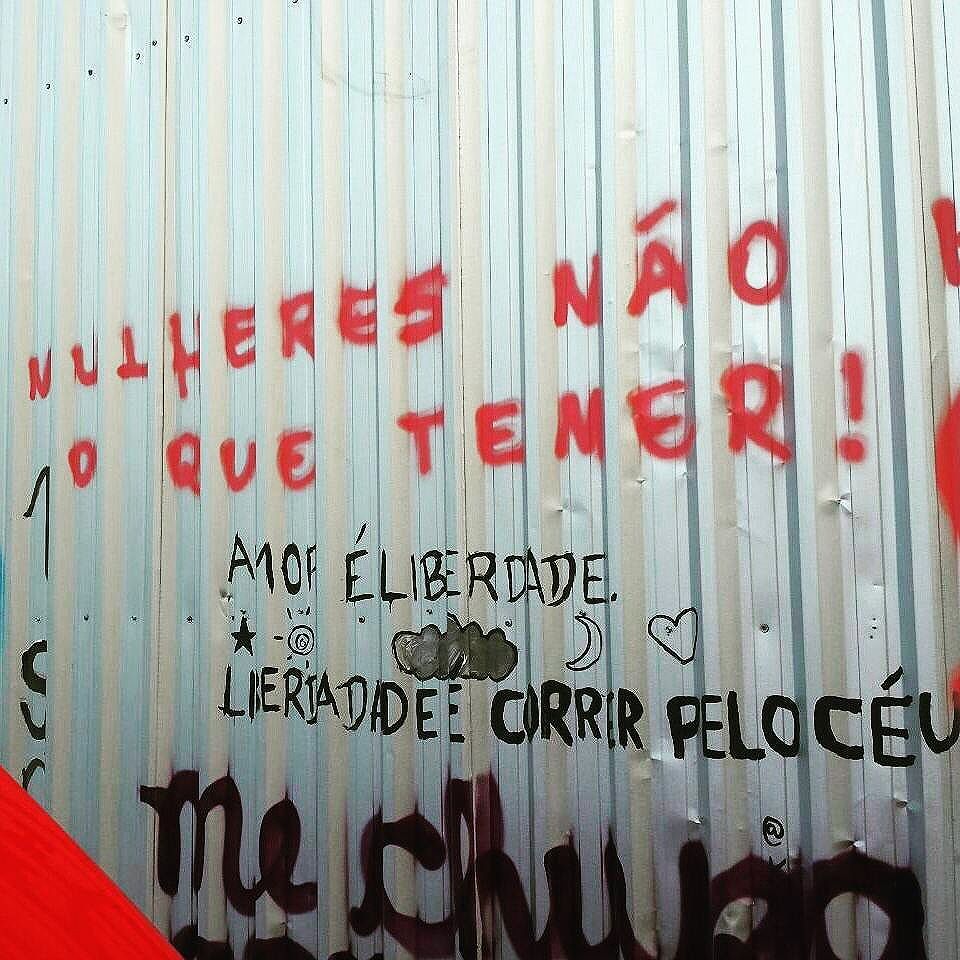 MULHERES NÃO
O QUE TEMER!
AMOR É LIBERDADE.
LIBERDADE É CORRER PELO CÉU
@
me chupa